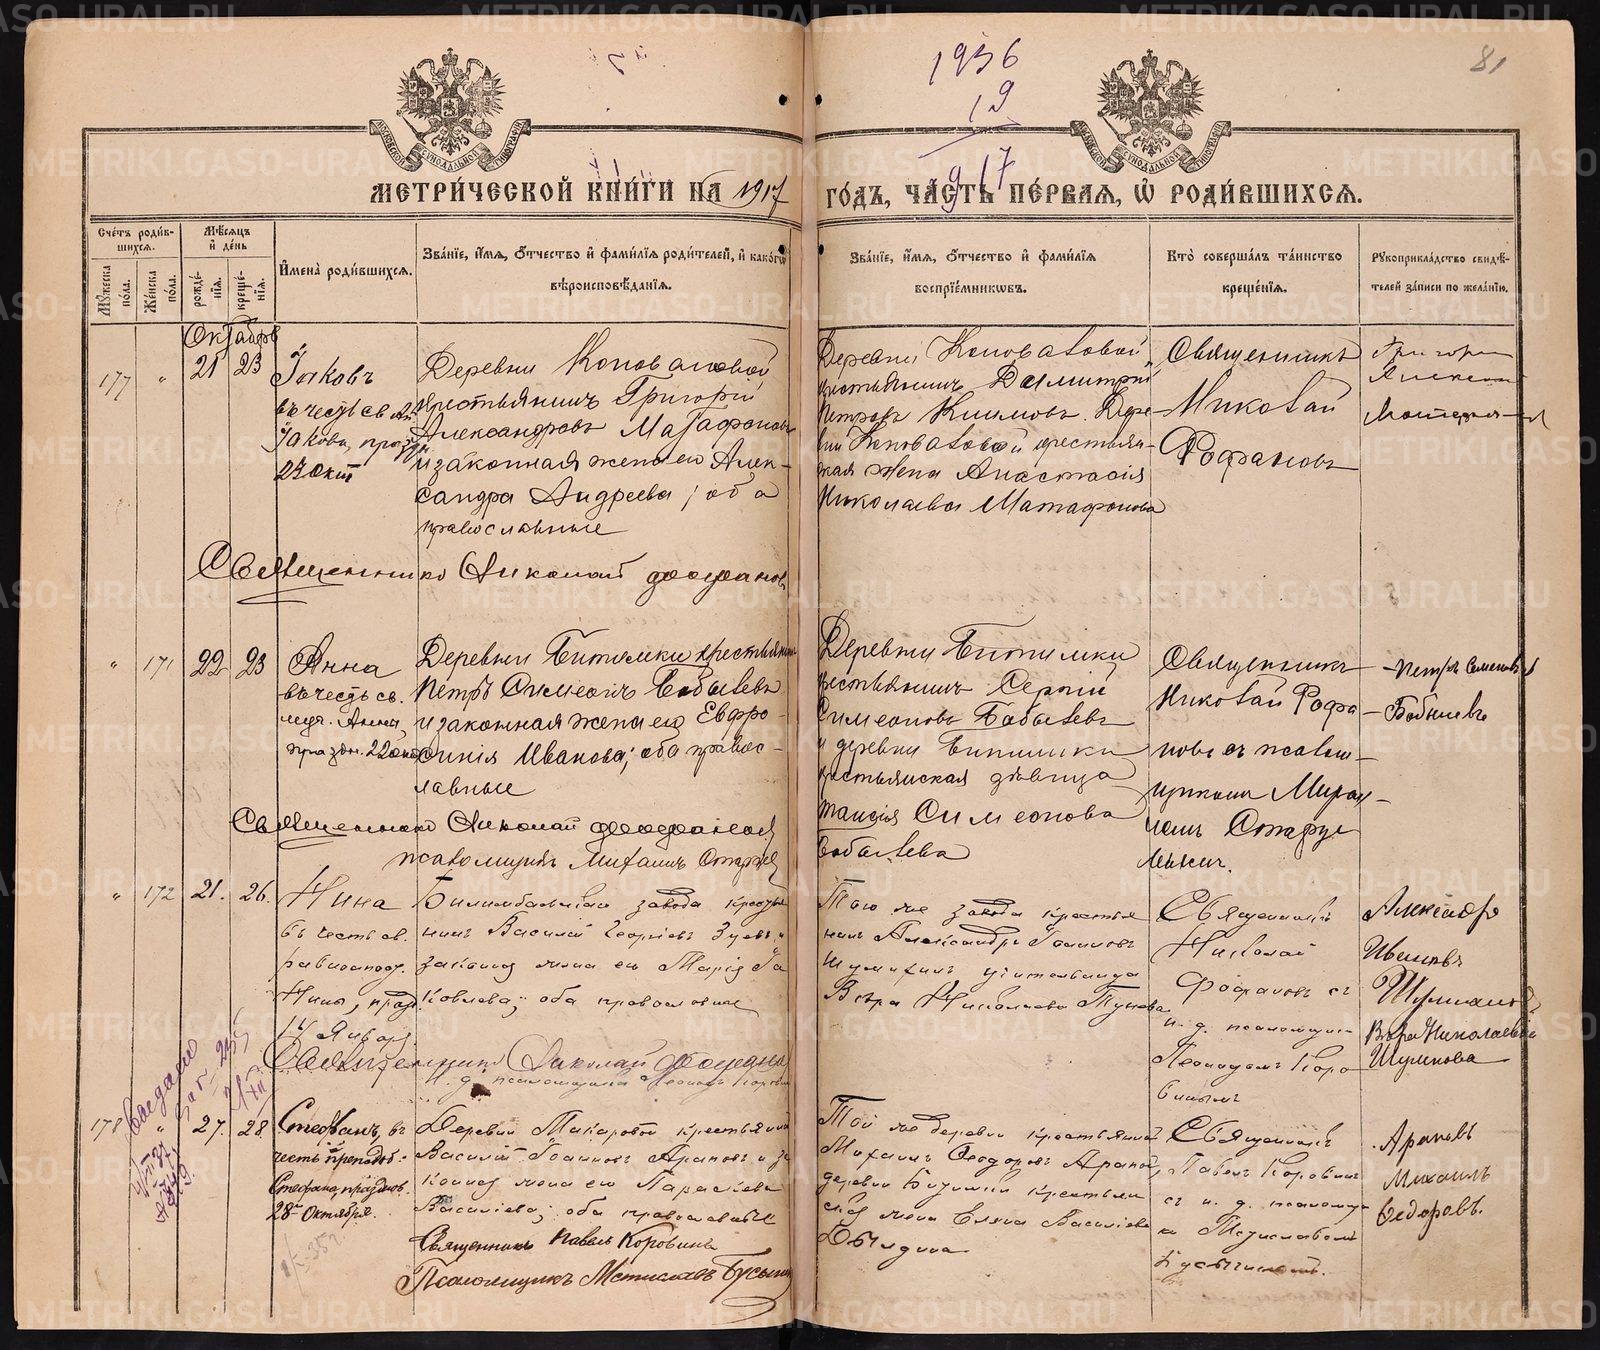 1936
19
917
81
МОСКОВСКОЙ СУНОДАЛЬНОЙ ТИПОГРАФІИ
МОСКОВСКОЙ СУНОДАЛЬНОЙ ТИПОГРАФІИ
МЕТРИ́ЧЕСКОЙ КНИ́ГИ НА 1917
ГО́ДЪ, ЧА́СТЬ ПЕ́РВАЯ, Ѡ҆ РОДИ́ВШИХСЯ.
Сче́тъ роди́в-
шихся.
Мꙋ́жеска по́ла.
Же́нска по́ла.
Мѣ́сяцъ
и҆ де́нь
рожде́-
нїя.
креще́-
нїя.
И҆мена̀ роди́вшихся.
Зва́нїе, и҆́мя, о҆́тчество и҆ фами́лїя роди́телей, и҆ како́гѡ
вѣроисповѣ́данїя.
Зва́нїе, и҆́мя, о҆́тчество и҆ фами́лїя
воспрїе́мникѡвъ.
Кто̀ соверша́лъ та́инство
креще́нїя.
Рꙋкоприкла́дство свидѣ́-
телей за́писи по жела́нїю.
Октябрь
177 " 21 23
Іаковъ
въ честь св. Ап.
Іакова, празд.
23 окт
Деревни Коноваловой
крестьянинъ Григорій
Александровъ Матафоновъ
и законная жена его Алек-
сандра Андреева; оба
православные
Деревни Коноваловой
крестьянинъ Димитрій
Петровъ Климовъ. Дере-
вни Коноваловой крестьян-
ская жена Анастасія
Николаева Матафонова
Священникъ
Николай
Фофановъ
Григори
Священникъ Николай Фофановъ
" 171 22 23
Анна
въ честь св.
муч. Анны,
празд. 22 окт
Деревни Битимки крестьянинъ
Петръ Симеонъ Бабыкевъ
и законная жена его Евфро-
синія Иванова; оба правос-
лавные
Деревни Битимки
крестьянинъ Сергій
Симеоновъ
и деревни Битимки
крестьянская дѣвица
Таисія Симеонова
Священникъ
Николай Фофа-
новъ съ псалом-
щикомъ Михаи-
ломъ
Петръ Семеновъ
Священникъ Николай Фофановъ
псаломщикъ Михаилъ
" 172 21. 26.
Нина
въ честь св.
равноапос.
Нины, празд.
14 Январ.
Билимбаевскаго завода крестья
нинъ Василій Георгіевъ Зуевъ и
законная жена его Марія Іа
ковлева; оба православные
Того же завода крестья
нинъ Александръ Іоанновъ
учительница
Вѣра Николаева
Священникъ
Николай
Фофановъ съ
и. д. псаломщик
Леонидомъ Коро
винымъ
Александръ
Ивановъ
Вѣра Николаевна
Священникъ Николай Фофановъ
и. д. псаломщика Леонидъ Коровинъ
178 " 27. 28.
Стефанъ, въ
честь преподоб.
Стефана, празднов.
28го Октября.
Деревни Макаровой крестьянинъ
Василій Іоанновъ Араповъ и за
конная жена его Параскева
Васильева; оба православные
Той же деревни крестьянинъ
Михаилъ Ѳеодоровъ Араповъ,
деревни Битимки крестьян
ская жена Елена Васильева
Священникъ
Павелъ Коровинъ
съ и. д. псаломщи
ка Мстиславомъ
Бусыгинымъ.
Араповъ
Михаилъ
Ѳедоровъ.
Священникъ Павелъ Коровинъ
Псаломщикъ Мстиславъ Бусыгин
METRIKI.GASO-URAL.RU